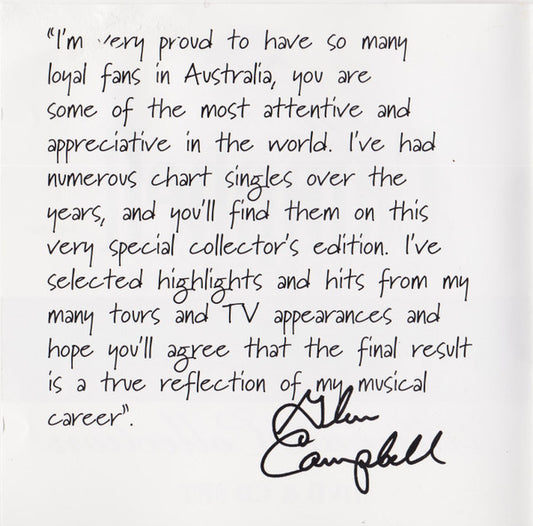 "I'm very proud to have so many
loyal fans in Australia, you are
some of the most attentive and
appreciative in the world. I've had
numerous chart singles over the
years, and you'll find them on this
very special collector's edition. I've
selected highlights and hits from my
many tours and TV appearances and
hope you'll agree that the final result
is a true reflection of my musical
career".
Glen
Campbell